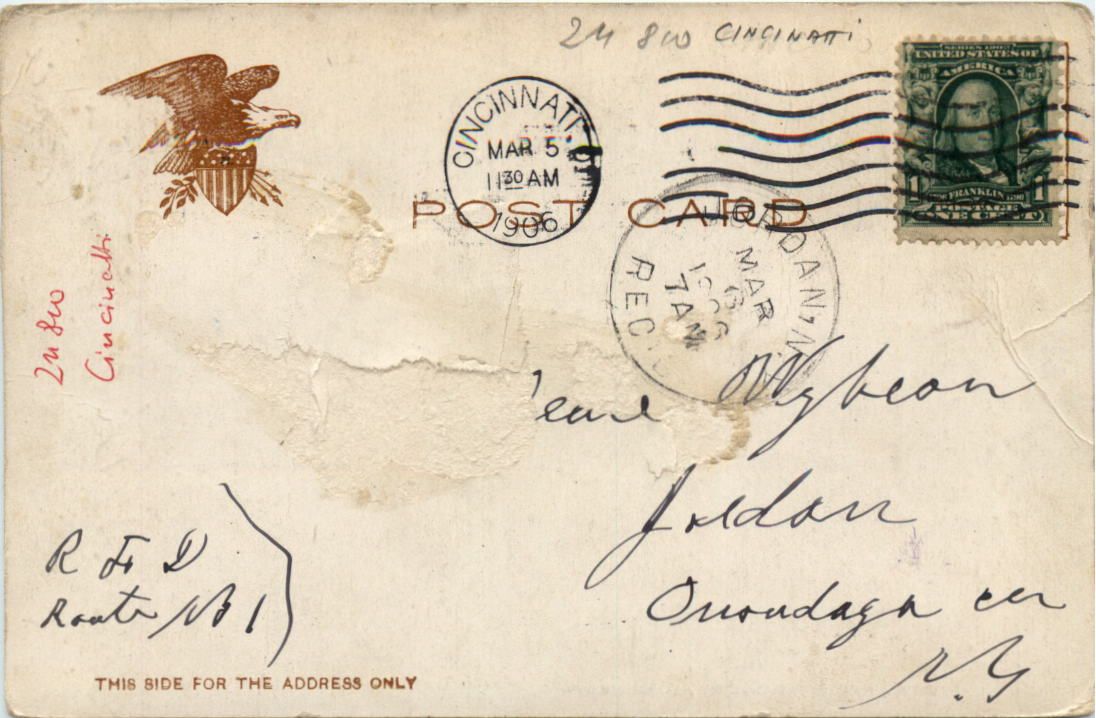 Cincinatti
CINCINNATI, O
MAR 5
11 30 AM
1906
SERIES 1902
UNITED STATES OF
AMERICA
FRANKLIN
POSTAGE
1 ONE CENT 1
POST CARD
JORDAN, N.Y.
MAR
6
1906
7 AM
REC'D
Cincinatti
Jordan
Onondaga
N.Y
R F D
Route No 1
THIS SIDE FOR THE ADDRESS ONLY